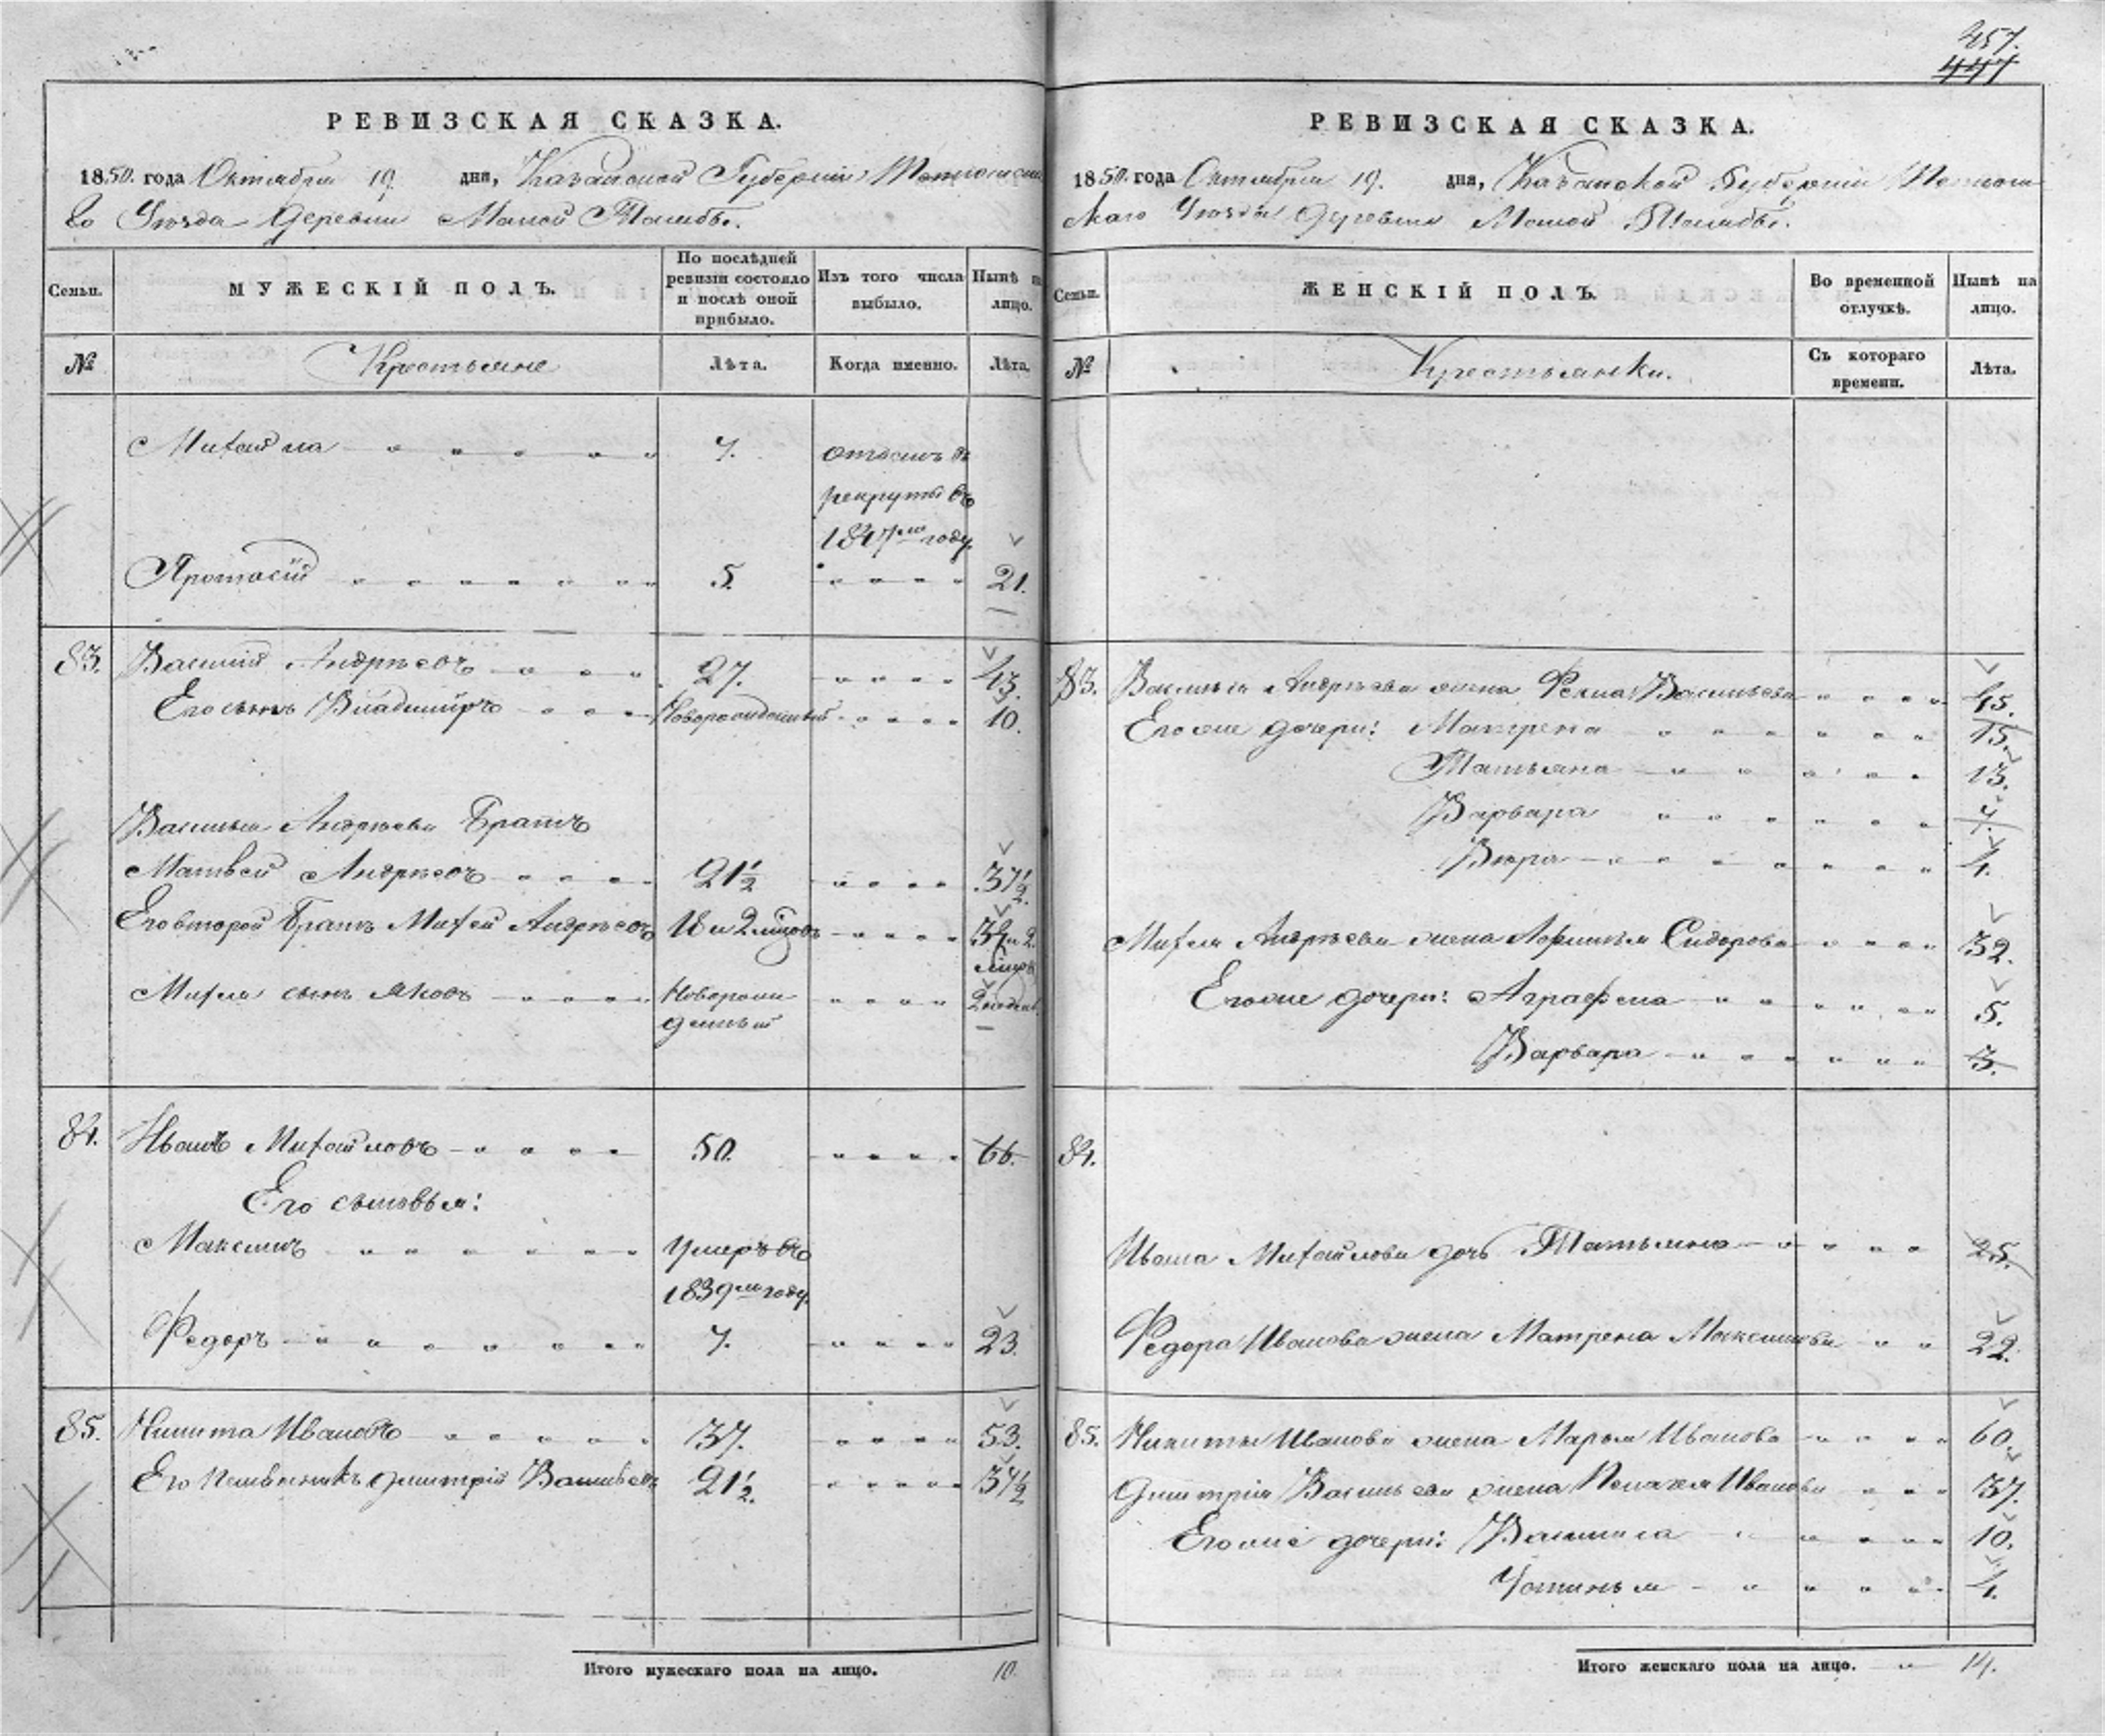 457.
447
РЕВИЗСКАЯ СКАЗКА.
1850. года Октября 19. дня, Казанской Губернии
Уѣзда Деревни Малой
Семьи.
МУЖЕСКІЙ ПОЛЪ.
По послѣдней ревизіи состояло и послѣ оной прибыло.
Изъ того числа выбыло.
Нынѣ на лицо.
№
Крестьяне
Лѣта.
Когда именно.
Лѣта.
Михайла 7. отданъ въ
рекруты въ
1847мъ году.
Протасій 5. 21.
83. Василій Андрѣевъ 27. 43.
Его сынъ Владимиръ Новорожденный 10.
Василья Андрѣева Братъ
Матвей Андрѣевъ 21½ 37½.
Его второй братъ Михей Андрѣевъ 18 и 2 мѣсяц.
Михея сынъ Яковъ Новорож
денный
84. Иванъ Михайловъ 50. 66.
Его сыновья:
Максимъ умеръ въ
1839мъ году.
Федоръ 7. 23.
85. Никита Ивановъ 37. 53.
Его племянникъ Дмитрій Васильевъ 21½. 37½
Итого мужескаго пола на лицо. 10.
РЕВИЗСКАЯ СКАЗКА.
1850. года Октября 19. дня, Казанской Губерніи
скаго Уѣзда Деревни Малой
Семьи.
ЖЕНСКІЙ ПОЛЪ.
Во временной отлучкѣ.
Нынѣ на лицо.
№
Крестьянки.
Съ котораго времени.
Лѣта.
83. Василья Андрѣева жена Васильева 45.
Его же дочери: Матрена 15.
Татьяна 13.
Варвара 7.
4.
Михея Андрѣева жена Сидорова 32.
Его же дочери: Аграфена 5.
Варвара 3.
84.
Ивана Михайлова дочь Татьяна 25.
Федора Иванова жена Матрена Максимова 22.
85. Никиты Иванова жена Марья Иванова 60.
Дмитрія Васильева жена Пелагея Иванова 37.
Его же дочери: Василиса 10.
Устинья 4.
Итого женскаго пола на лицо. 14.